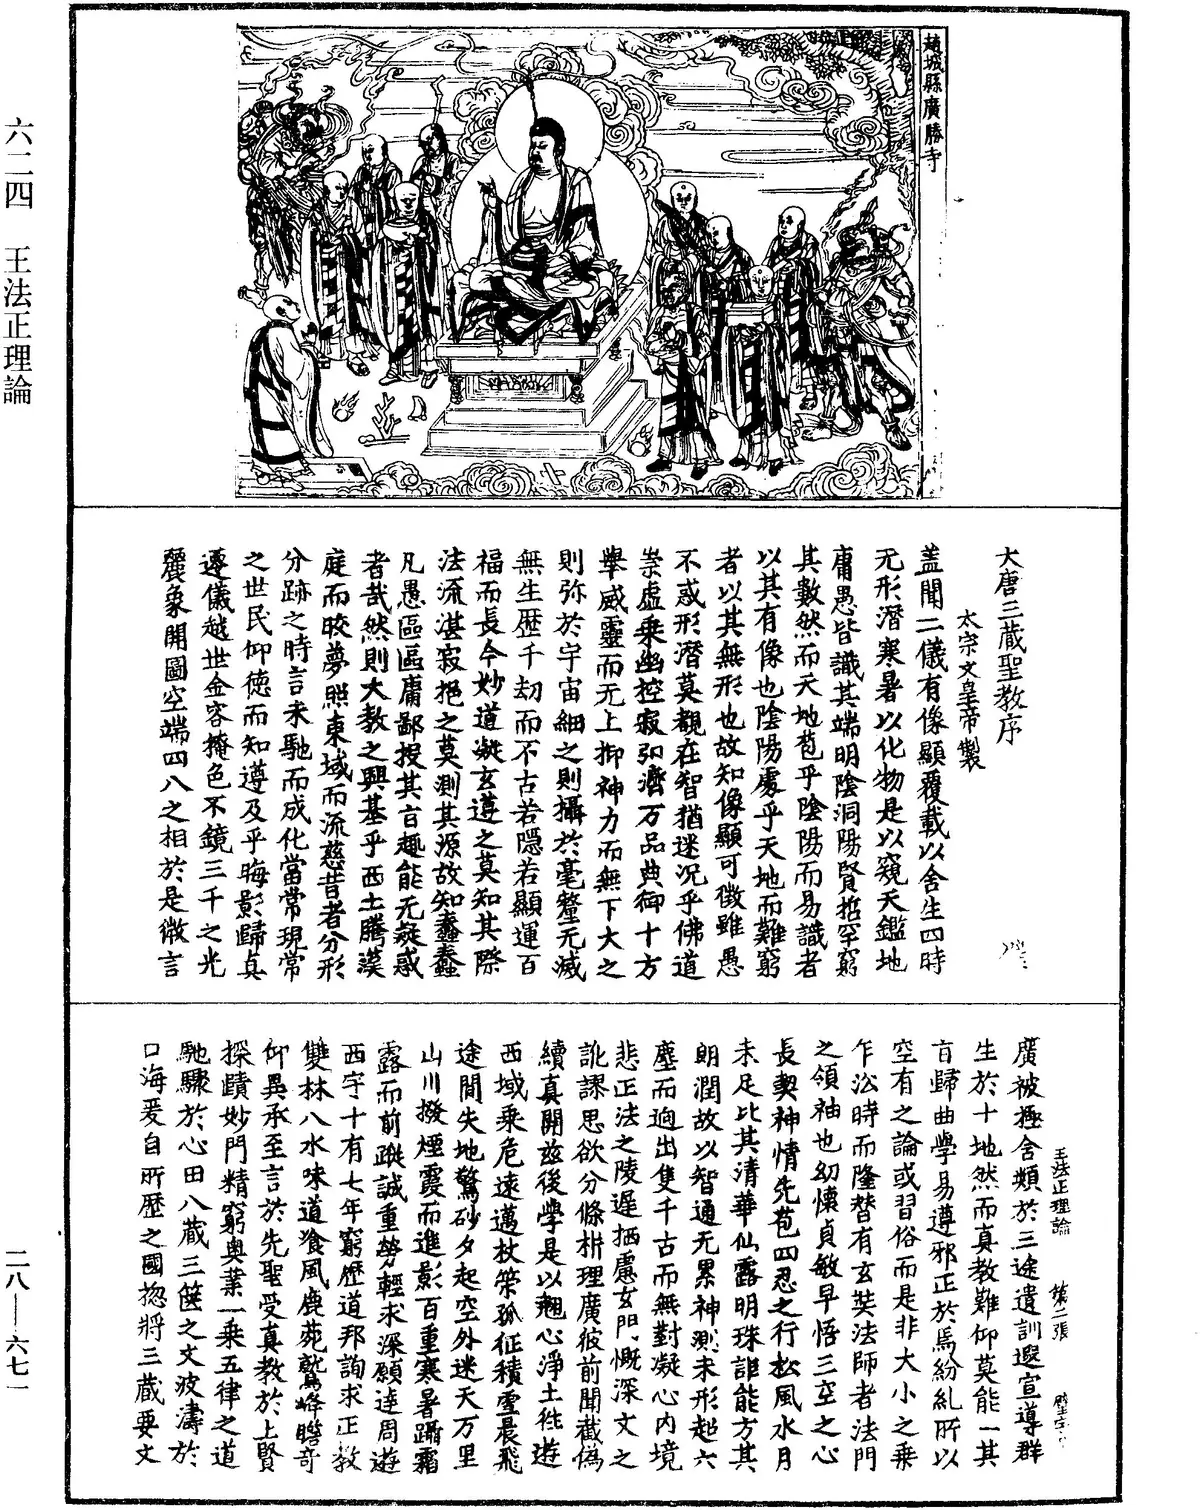 六二四　王法正理論
趙城縣廣勝寺
大唐三藏聖教序
太宗文皇帝製
盖聞二儀有像顯覆載以含生四時
无形潛寒暑以化物是以窺天鑑地
庸愚皆識其端明陰洞陽賢哲罕窮
其數然而天地苞乎陰陽而易識者
以其有像也陰陽處乎天地而難窮
者以其無形也故知像顯可徵雖愚
不惑形潛莫覩在智猶迷况乎佛道
崇虛乗幽控寂弘濟万品典御十方
舉威靈而无上抑神力而無下大之
則弥於宇宙細之則攝於毫釐无滅
無生歷千劫而不古若隱若顯運百
福而長今妙道凝玄遵之莫知其際
法流湛寂挹之莫測其源故知蠢蠢
凡愚區區庸鄙投其旨趣能无疑惑
者㢤然則大教之興基乎西土騰漢
庭而皎夢照東域而流慈昔者分形
分跡之時言未馳而成化當常現常
之世民仰德而知遵及乎晦影歸真
遷儀越世金容掩色不鏡三千之光
麗象開圖空端四八之相於是微言
廣被拯含類於三途遺訓遐宣導群
生於十地然而真教難仰莫能一其
旨歸曲學易遵邪正於焉紛糺所以
空有之論或習俗而是非大小之乗
乍沿時而隆替有玄奘法師者法門
之領袖也幼懷貞敏早悟三空之心
長契神情先苞四忍之行松風水月
未足比其清華仙露明珠詎能方其
朗潤故以智通无累神測未形超六
塵而迥出隻千古而無對凝心內境
悲正法之陵遲栖慮玄門慨深文之
訛謬思欲分條㭊理廣彼前聞截偽
續真開兹後學是以翹心淨土徃遊
西域乗危遠邁杖策孤征積雪晨飛
途間失地驚砂夕起空外迷天万里
山川撥煙霞而進影百重寒暑躡霜
露而前蹤誠重勞輕求深願達周遊
西宇十有七年窮歷道邦詢求正教
雙林八水味道飡風鹿苑鷲峰瞻奇
仰異承至言於先聖受真教於上賢
探賾妙門精窮奧業一乗五律之道
馳驟於心田八藏三篋之文波濤於
口海爰自所歷之國揔將三藏要文
王法正理論　第二張
二八—六七一